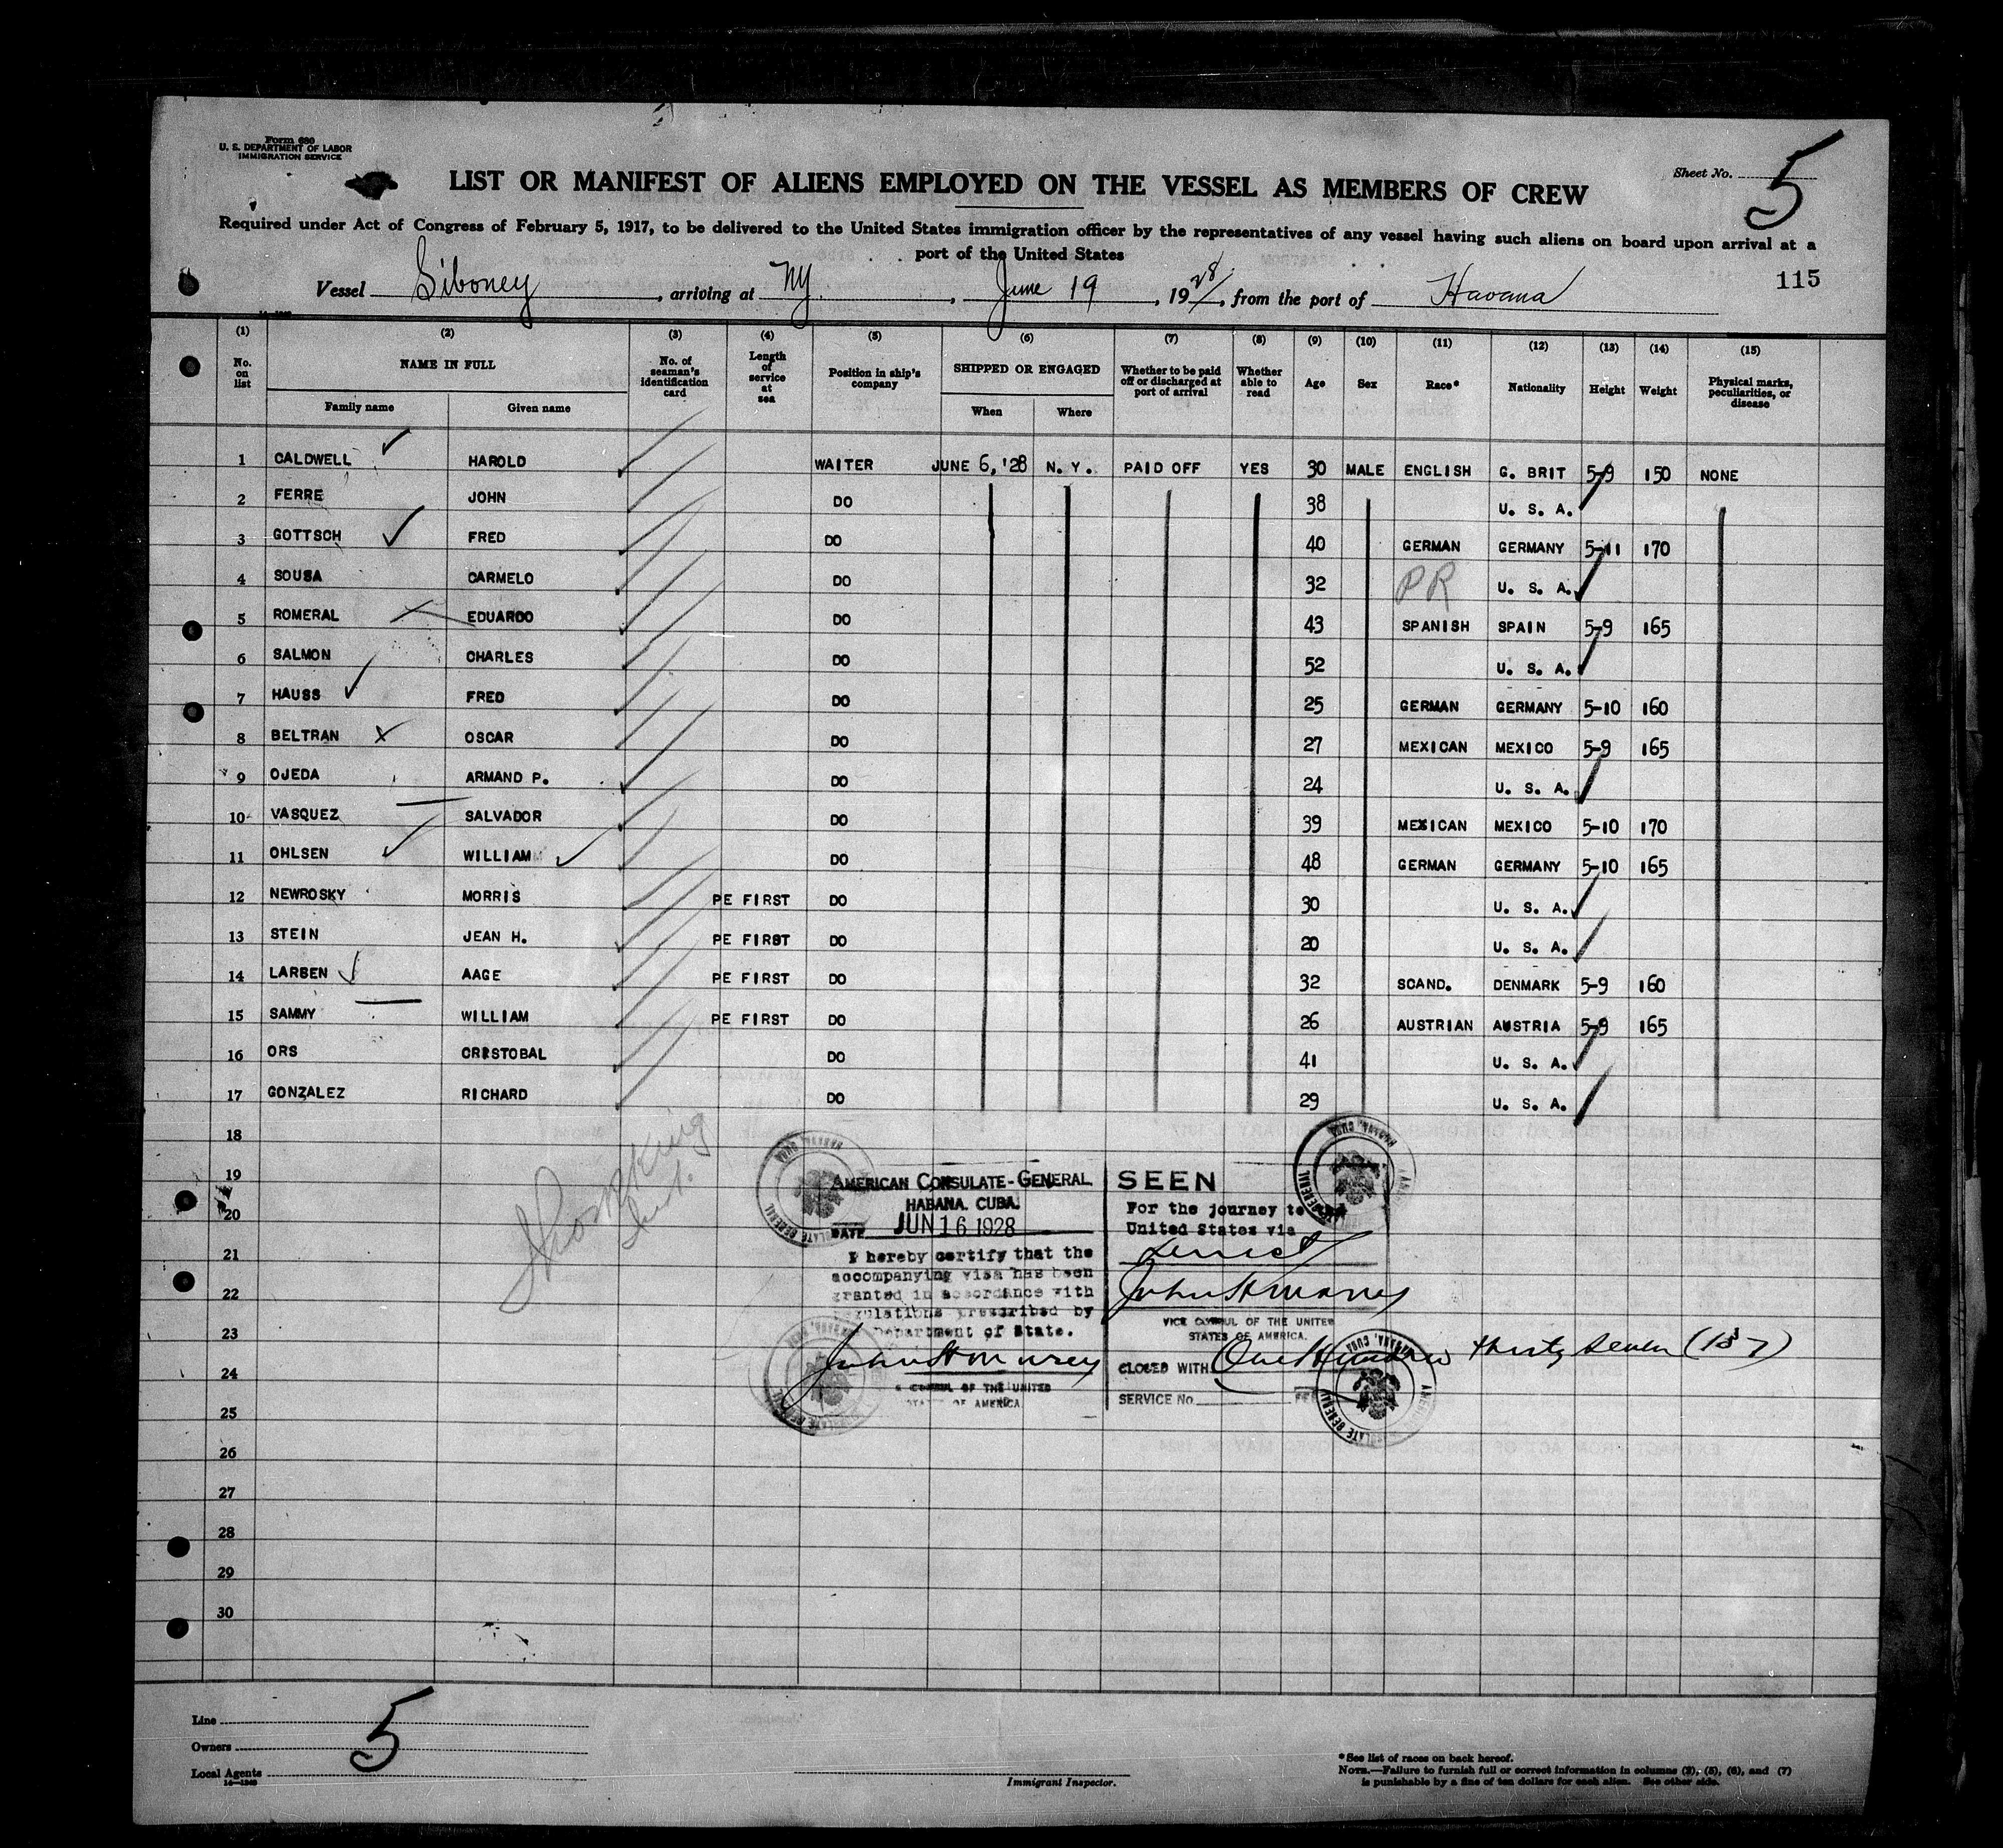 Form 680
U. S. DEPARTMENT OF LABOR
IMMIGRATION SERVICE
Sheet No. 5
LIST OR MANIFEST OF ALIENS EMPLOYED ON THE VESSEL AS MEMBERS OF CREW
Required under Act of Congress of February 5, 1917, to be delivered to the United States immigration officer by the representatives of any vessel having such aliens on board upon arrival at a
port of the United States
115
Vessel Siboney, arriving at NY., June 19, 1928, from the port of Havana
(1) (2) (3) (4) (5) (6) (7) (8) (9) (10) (11) (12) (13) (14) (15)
No. on list NAME IN FULL Family name Given name No. of seaman's identification card Length of service at sea Position in ship's company SHIPPED OR ENGAGED When Where Whether to be paid off or discharged at port of arrival Whether able to read Age Sex Race* Nationality Height Weight Physical marks, peculiarities, or disease
1 CALDWELL HAROLD WAITER JUNE 6, '28 N. Y. PAID OFF YES 30 MALE ENGLISH G. BRIT 5-9 150 NONE
2 FERRE JOHN DO 38 U. S. A.
3 GOTTSCH FRED DO 40 GERMAN GERMANY 5-11 170
4 SOUSA CARMELO DO 32 PR U. S. A.
5 ROMERAL EDUARDO DO 43 SPANISH SPAIN 5-9 165
6 SALMON CHARLES DO 52 U. S. A.
7 HAUSS FRED DO 25 GERMAN GERMANY 5-10 160
8 BELTRAN OSCAR DO 27 MEXICAN MEXICO 5-9 165
9 OJEDA ARMAND P. DO 24 U. S. A.
10 VASQUEZ SALVADOR DO 39 MEXICAN MEXICO 5-10 170
11 OHLSEN WILLIAM DO 48 GERMAN GERMANY 5-10 165
12 NEWROSKY MORRIS PE FIRST DO 30 U. S. A.
13 STEIN JEAN H. PE FIRST DO 20 U. S. A.
14 LARSEN AAGE PE FIRST DO 32 SCAND. DENMARK 5-9 160
15 SAMMY WILLIAM PE FIRST DO 26 AUSTRIAN AUSTRIA 5-9 165
16 ORS CRISTOBAL DO 41 U. S. A.
17 GONZALEZ RICHARD DO 29 U. S. A.
18
19
20
21
22
23
24
25
26
27
28
29
30
AMERICAN CONSULATE-GENERAL
HABANA, CUBA.
DATE JUN 16 1928
I hereby certify that the
accompanying visa has been
granted in accordance with
regulations prescribed by
Department of State.
CONSUL OF THE UNITED
STATES OF AMERICA
SEEN
For the journey to
United States via
direct
VICE CONSUL OF THE UNITED
STATES OF AMERICA.
CLOSED WITH One Hundred thirty seven (137)
SERVICE No.
Line
Owners
Local Agents
14-1240
5
Immigrant Inspector.
*See list of races on back hereof.
NOTE.—Failure to furnish full or correct information in columns (2), (5), (6), and (7)
is punishable by a fine of ten dollars for each alien. See other side.